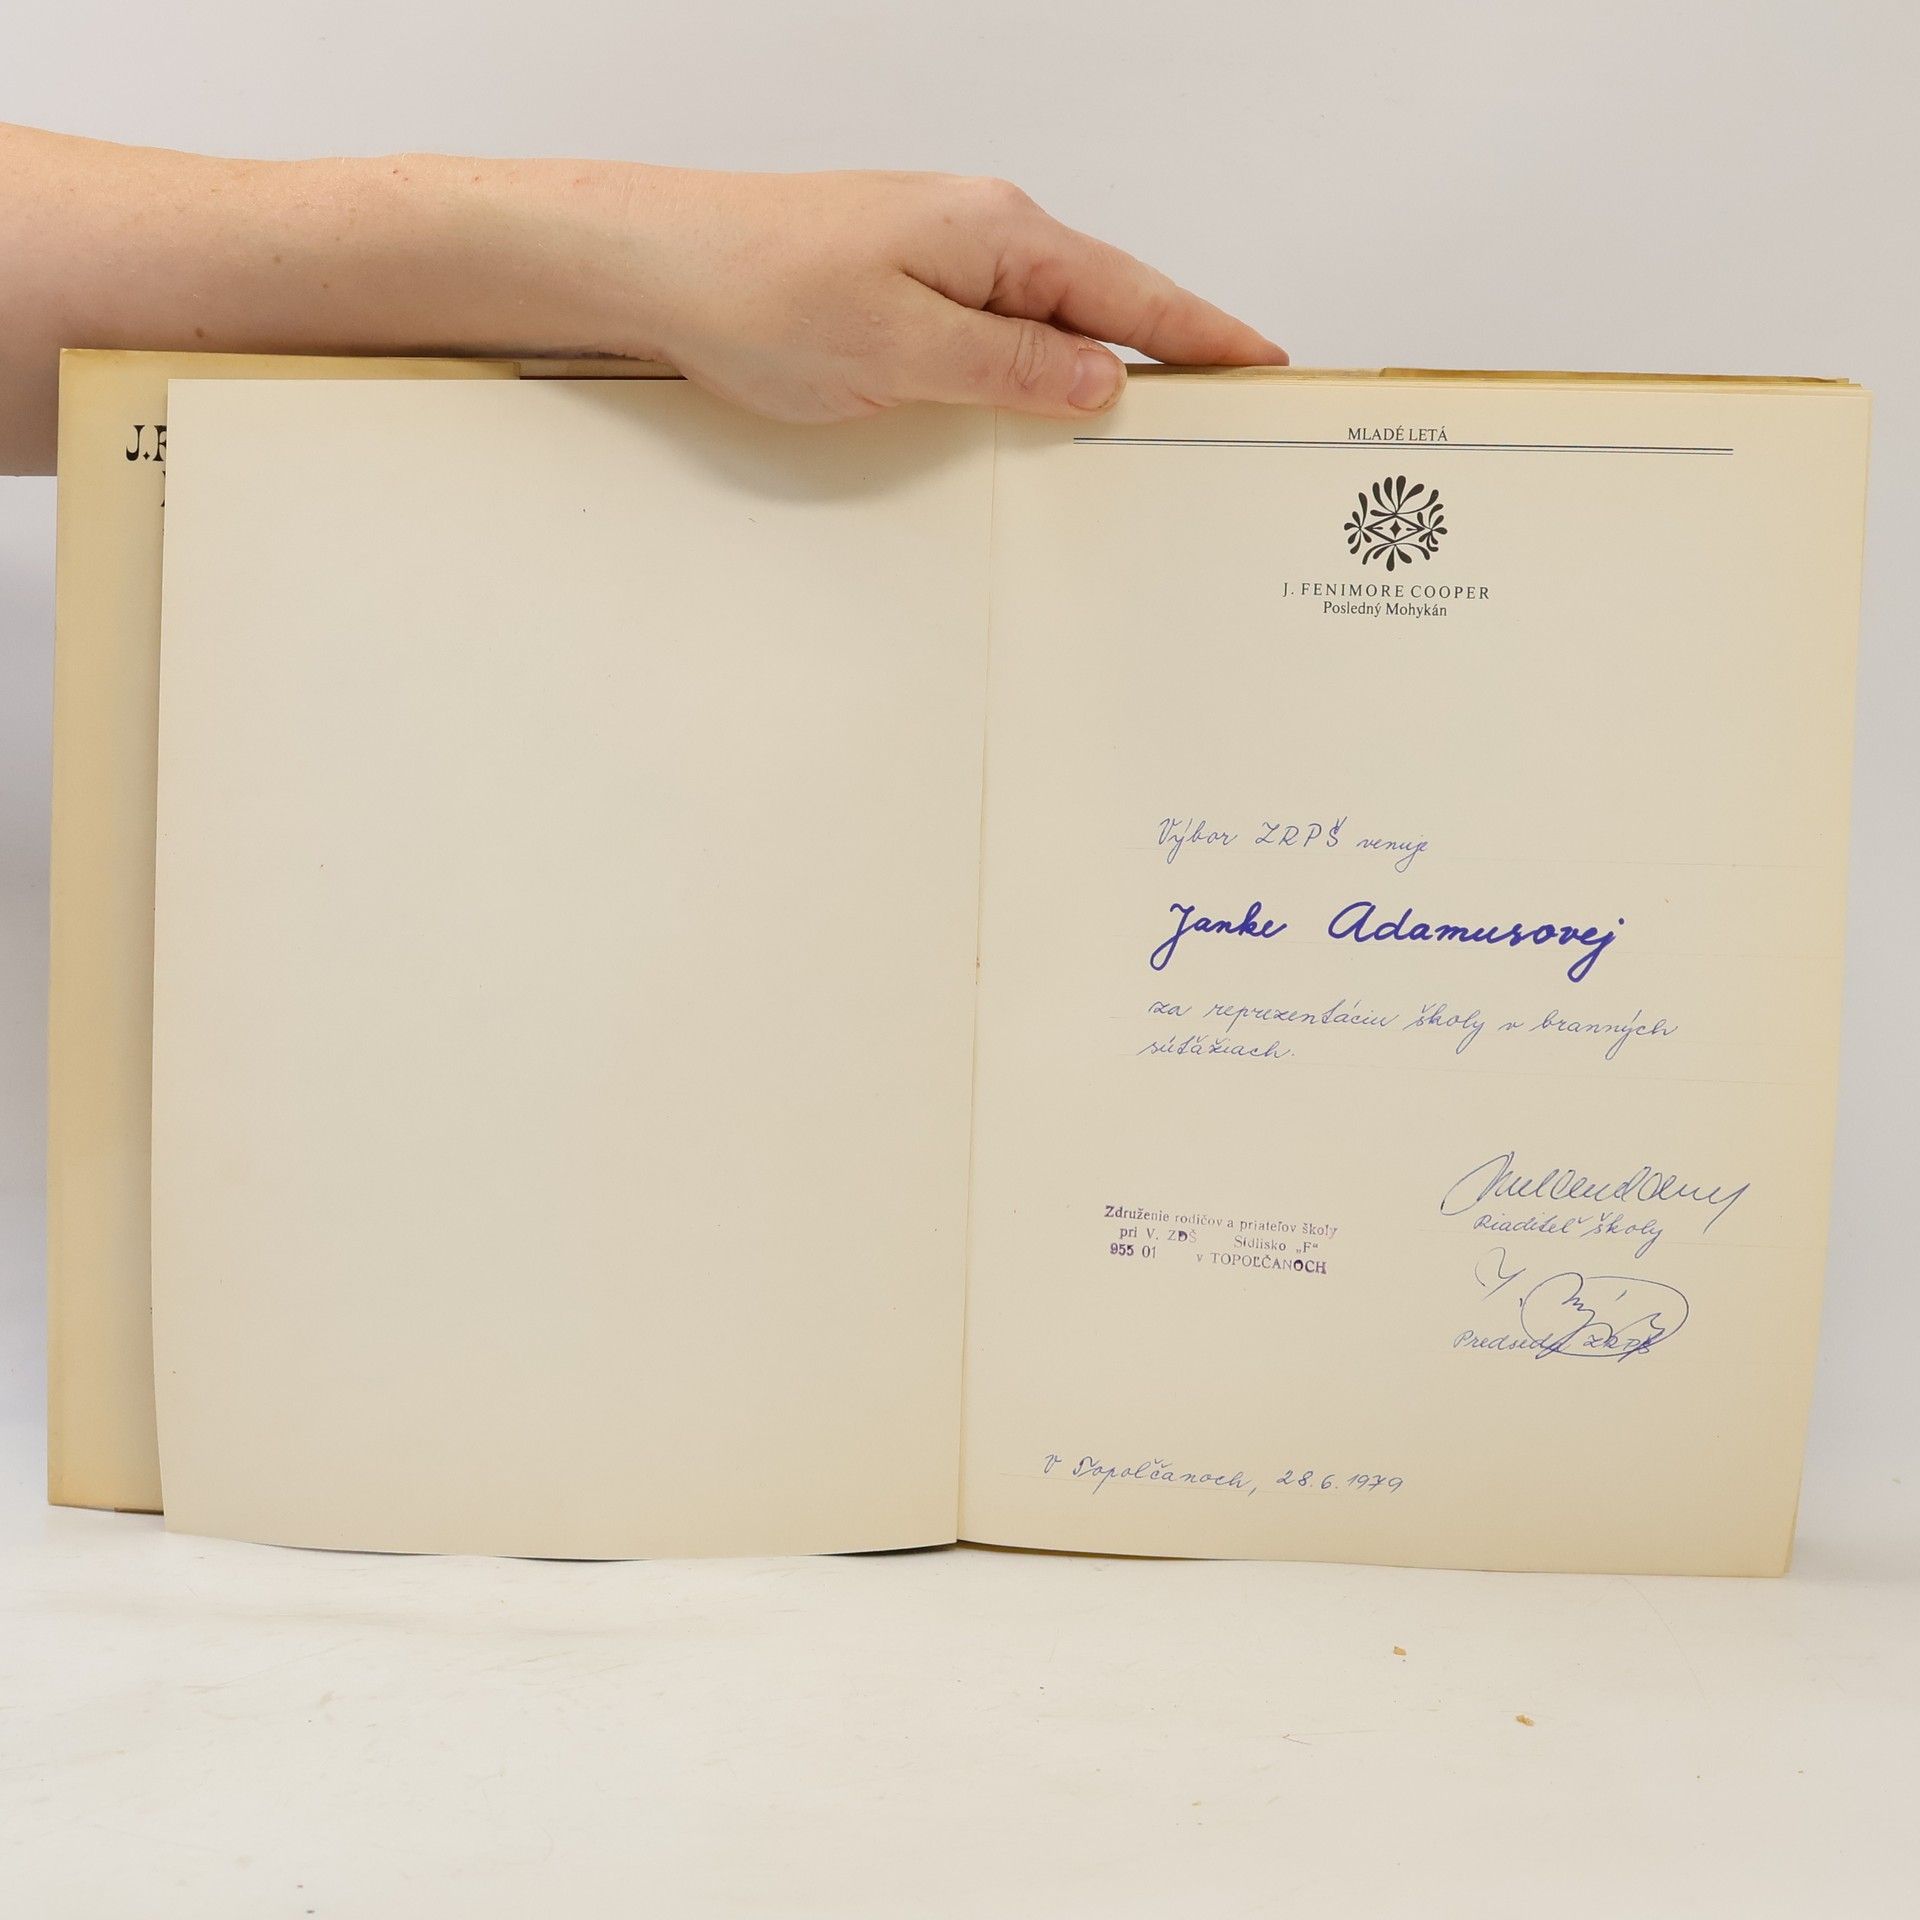 J.F
MLADÉ LETÁ
J. FENIMORE COOPER
Posledný Mohykán
Výbor ZRPŠ venuje
Janke Adamusovej
za reprezentáciu školy v branných
súťažiach.
Riaditeľ školy
Združenie rodičov a priateľov školy
pri V. ZDŠ Sídlisko „F“
955 01 v TOPOĽČANOCH
Predseda ZRPŠ
V Topoľčanoch, 28.6.1979